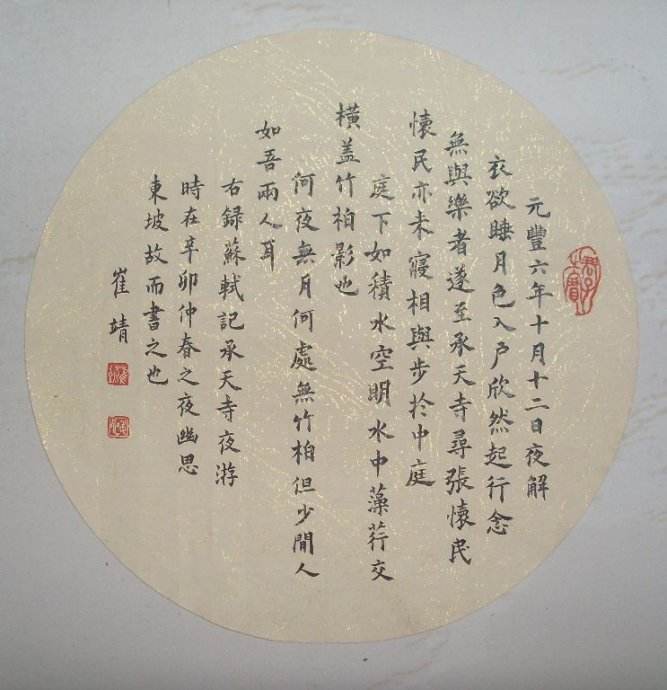 元豐六年十月十二日夜解
衣欲睡月色入户欣然起行念
無與樂者遂至承天寺尋張懷民
懷民亦未寢相與步於中庭
庭下如積水空明水中藻荇交
橫盖竹柏影也
何夜無月何處無竹柏但少閒人
如吾兩人耳
右録蘇軾記承天寺夜游
時在辛卯仲春之夜幽思
東坡故而書之也
崔靖